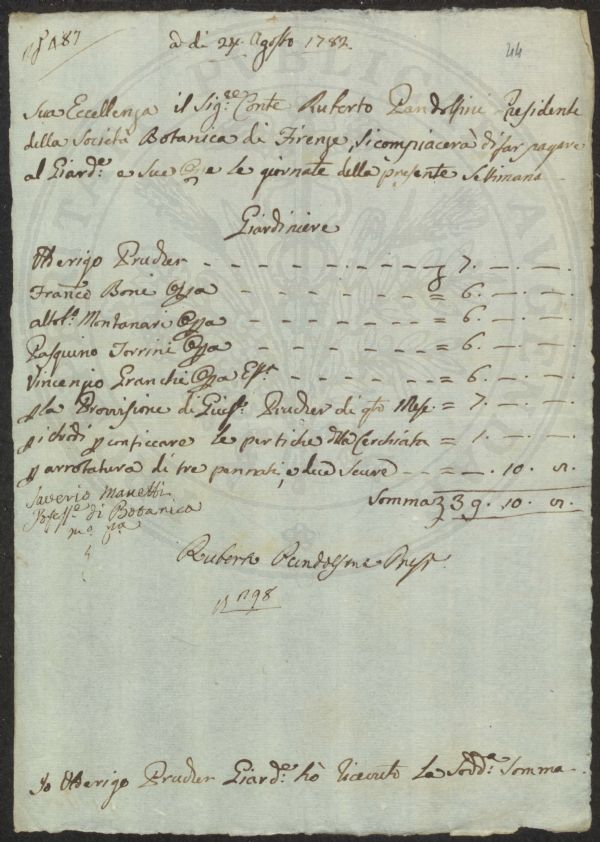 a di 24. Agosto 1782.
44
Sua Eccellenza il Sig.re Conte Ruberto Pandolfini Presidente
della Società Botanica di Firenze, si compiacerà di far pagare
al Giard.e e sue Opre le giornate della presente Settimana
Giardiniere
Otterigo Prucker - - - - - - - - 7. - . - .
Franc.o Boni Opra - - - - - - = 6. - . - .
Montanari Opra - - - - - - = 6. - . - .
Pasquino Torrini Opra - - - - - = 6. - . - .
Vincenzio Granchi Opra - - - - = 6. - . - .
la Provisione di Giu.e Prucker di q.to Mese = 7. - . - .
chiodi conficcare le pertiche della Cerchiata = 1. - . - .
arrotatura di tre pennati, e due Scure - - = - . 10. n.
Saverio Manetti
Profess.e di Botanica
m.o p.a
Somma 39. 10. n.
Ruberto Pandolfini Pres.
298
Io Otterigo Prucker Giard.e hò ricevuto la Sodd.a Somma